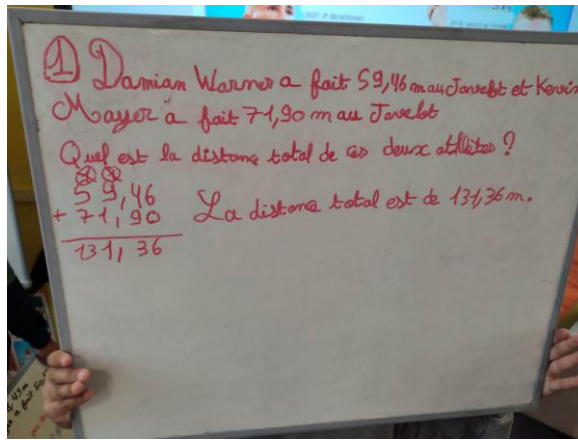 ① Damian Warner a fait 59,46 m au Javelot et Kevin
Mayer a fait 71,90 m au Javelot
Quel est la distance total de ces deux athlètes ?
59,46
+ 71,90
131,36
La distance total est de 131,36 m.